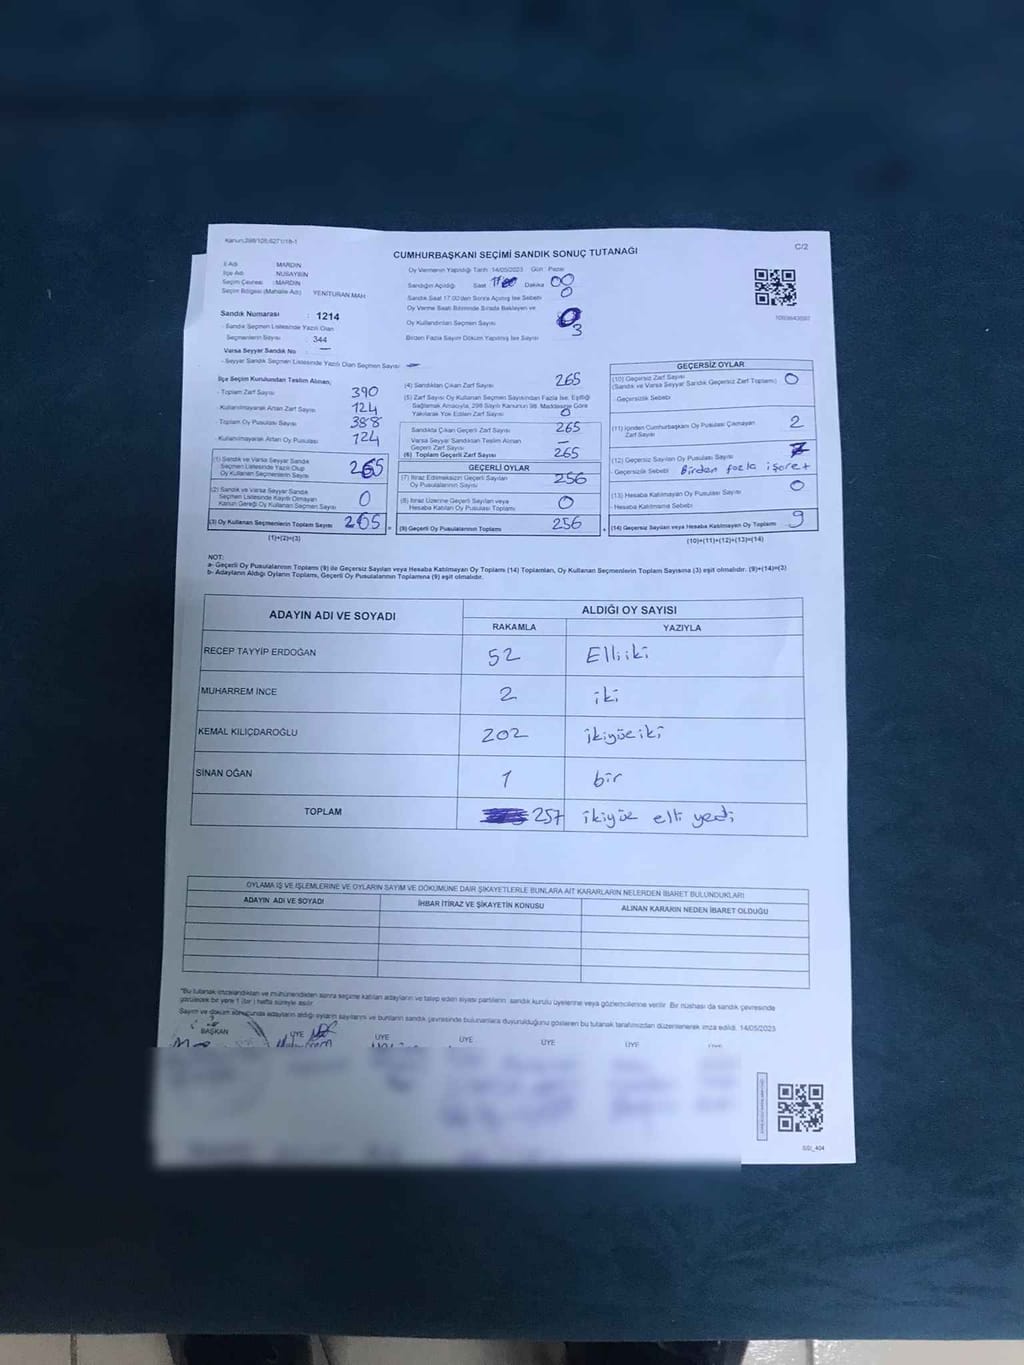 Kanun:298/105;6271/18-1
C/2
CUMHURBAŞKANI SEÇİMİ SANDIK SONUÇ TUTANAĞI
İl Adı : MARDİN
İlçe Adı : NUSAYBİN
Seçim Çevresi : MARDİN
Seçim Bölgesi (Mahalle Adı) YENİTURAN MAH.
Sandık Numarası : 1214
- Sandık Seçmen Listesinde Yazılı Olan
Seçmenlerin Sayısı : 344
Varsa Seyyar Sandık No : —
- Seyyar Sandık Seçmen Listesinde Yazılı Olan Seçmen Sayısı : —
Oy Vermenin Yapıldığı Tarih :14/05/2023 Gün : Pazar
Sandığın Açıldığı Saat Dakika 00
Sandık Saat 17.00'den Sonra Açılmış İse Sebebi 0
Oy Verme Saati Bitiminde Sırada Bekleyen ve
Oy Kullandırılan Seçmen Sayısı 0
Birden Fazla Sayım Döküm Yapılmış İse Sayısı 3
İlçe Seçim Kurulundan Teslim Alınan;
- Toplam Zarf Sayısı 390
- Kullanılmayarak Artan Zarf Sayısı 124
- Toplam Oy Pusulası Sayısı 388
- Kullanılmayarak Artan Oy Pusulası 124
(1) Sandık ve Varsa Seyyar Sandık
Seçmen Listesinde Yazılı Olup
Oy Kullanan Seçmenlerin Sayısı 265
(2) Sandık ve Varsa Seyyar Sandık
Seçmen Listesinde Kayıtlı Olmayan
Kanun Gereği Oy Kullanan Seçmen Sayısı 0
(3) Oy Kullanan Seçmenlerin Toplam Sayısı 265
(1)+(2)=(3)
(4) Sandıktan Çıkan Zarf Sayısı 265
(5) Zarf Sayısı Oy Kullanan Seçmen Sayısından Fazla İse, Eşitliği
Sağlamak Amacıyla, 298 Sayılı Kanunun 98. Maddesine Göre
Yakılarak Yok Edilen Zarf Sayısı 0
Sandıkta Çıkan Geçerli Zarf Sayısı 265
Varsa Seyyar Sandıktan Teslim Alınan
Geçerli Zarf Sayısı —
(6) Toplam Geçerli Zarf Sayısı 265
GEÇERLİ OYLAR
(7) İtiraz Edilmeksizin Geçerli Sayılan
Oy Pusulalarının Sayısı 256
(8) İtiraz Üzerine Geçerli Sayılan veya
Hesaba Katılan Oy Pusulası Toplamı 0
(9) Geçerli Oy Pusulalarının Toplamı 256
GEÇERSİZ OYLAR
(10) Geçersiz Zarf Sayısı
(Sandık ve Varsa Seyyar Sandık Geçersiz Zarf Toplamı) 0
- Geçersizlik Sebebi
(11) İçinden Cumhurbaşkanı Oy Pusulası Çıkmayan
Zarf Sayısı 2
(12) Geçersiz Sayılan Oy Pusulası Sayısı 7
- Geçersizlik Sebebi Birden fazla işaret
(13) Hesaba Katılmayan Oy Pusulası Sayısı 0
- Hesaba Katılmama Sebebi
(14) Geçersiz Sayılan veya Hesaba Katılmayan Oy Toplamı 9
(10)+(11)+(12)+(13)=(14)
NOT:
a- Geçerli Oy Pusulalarının Toplamı (9) ile Geçersiz Sayılan veya Hesaba Katılmayan Oy Toplamı (14) Toplamları, Oy Kullanan Seçmenlerin Toplam Sayısına (3) eşit olmalıdır. (9)+(14)=(3)
b- Adayların Aldığı Oyların Toplamı, Geçerli Oy Pusulalarının Toplamına (9) eşit olmalıdır.
ADAYIN ADI VE SOYADI ALDIĞI OY SAYISI
RAKAMLA YAZIYLA
RECEP TAYYİP ERDOĞAN 52 Elliiki
MUHARREM İNCE 2 iki
KEMAL KILIÇDAROĞLU 202 ikiyüziki
SİNAN OĞAN 1 bir
TOPLAM 257 ikiyüz elli yedi
OYLAMA İŞ VE İŞLEMLERİNE VE OYLARIN SAYIM VE DÖKÜMÜNE DAİR ŞİKAYETLERLE BUNLARA AİT KARARLARIN NELERDEN İBARET BULUNDUKLARI
ADAYIN ADI VE SOYADI İHBAR İTİRAZ VE ŞİKAYETİN KONUSU ALINAN KARARIN NEDEN İBARET OLDUĞU
*Bu tutanak imzalandıktan ve mühürlendikten sonra seçime katılan adayların ve talep eden siyasi partilerin sandık kurulu üyelerine veya gözlemcilerine verilir. Bir nüshası da sandık çevresinde
görülecek bir yere 1 (bir) hafta süreyle asılır.
Sayım ve döküm sonucunda adayların aldığı oyların sayılarını ve bunların sandık çevresinde bulunanlara duyurulduğunu gösteren bu tutanak tarafımızdan düzenlenerek imza edildi. 14/05/2023
BAŞKAN ÜYE ÜYE ÜYE ÜYE ÜYE ÜYE